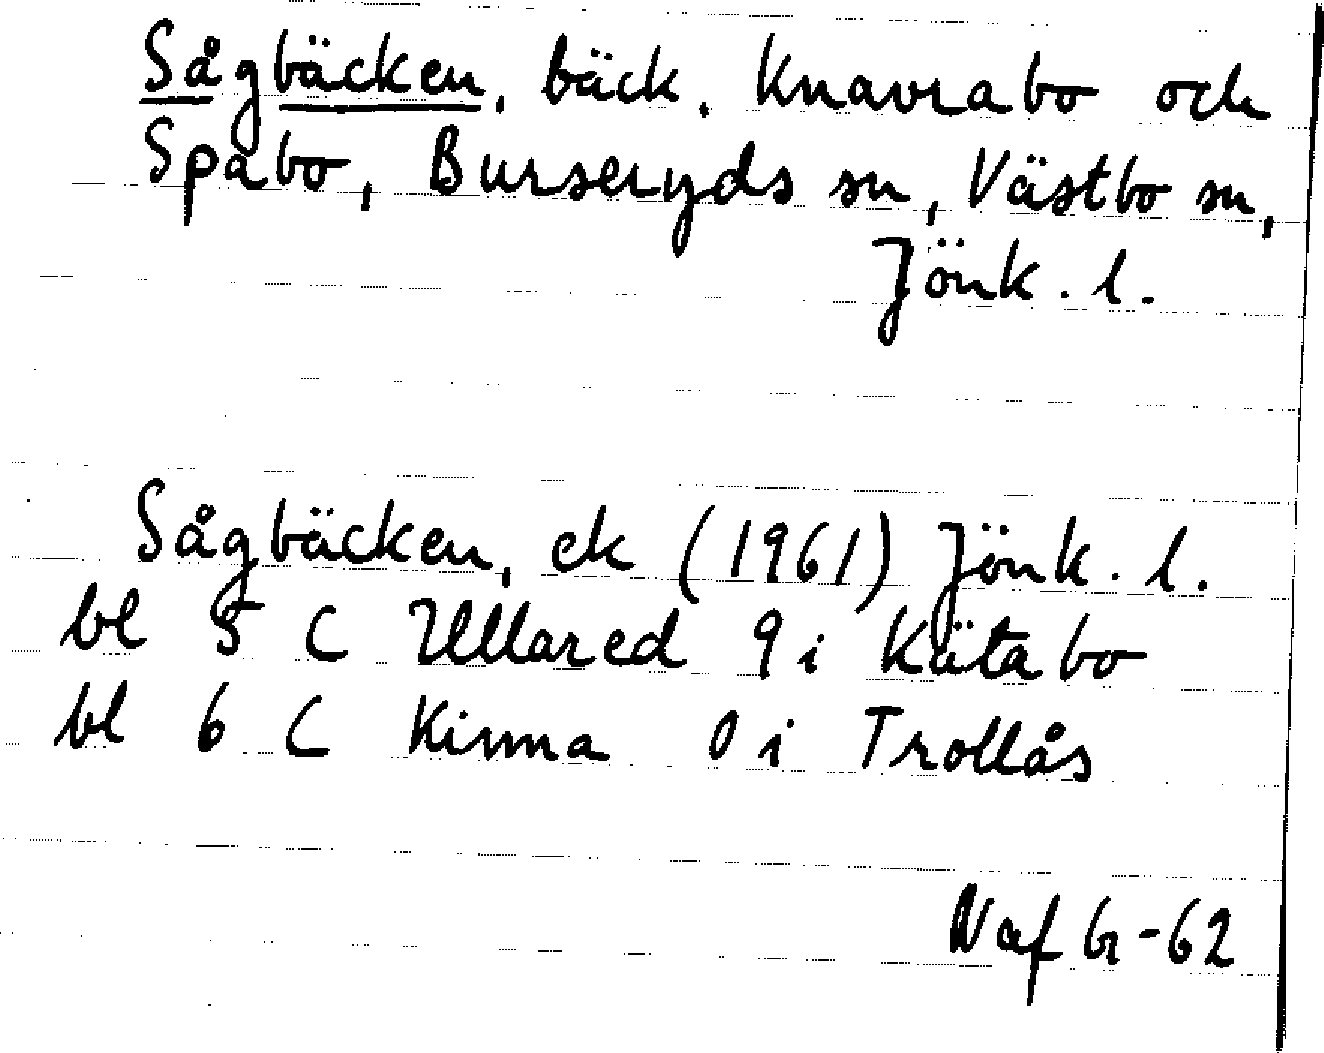 Sågbäcken, bäck, Knavrabo och
Spabo, Burseryds sn, Västbo sn,
Jönk. l.
Sågbäcken, ek (1961) Jönk. l.
bl 5 C Ullared 9 i Kätabo
bl 6 C Kinna 0 i Trollås
Naf G-62